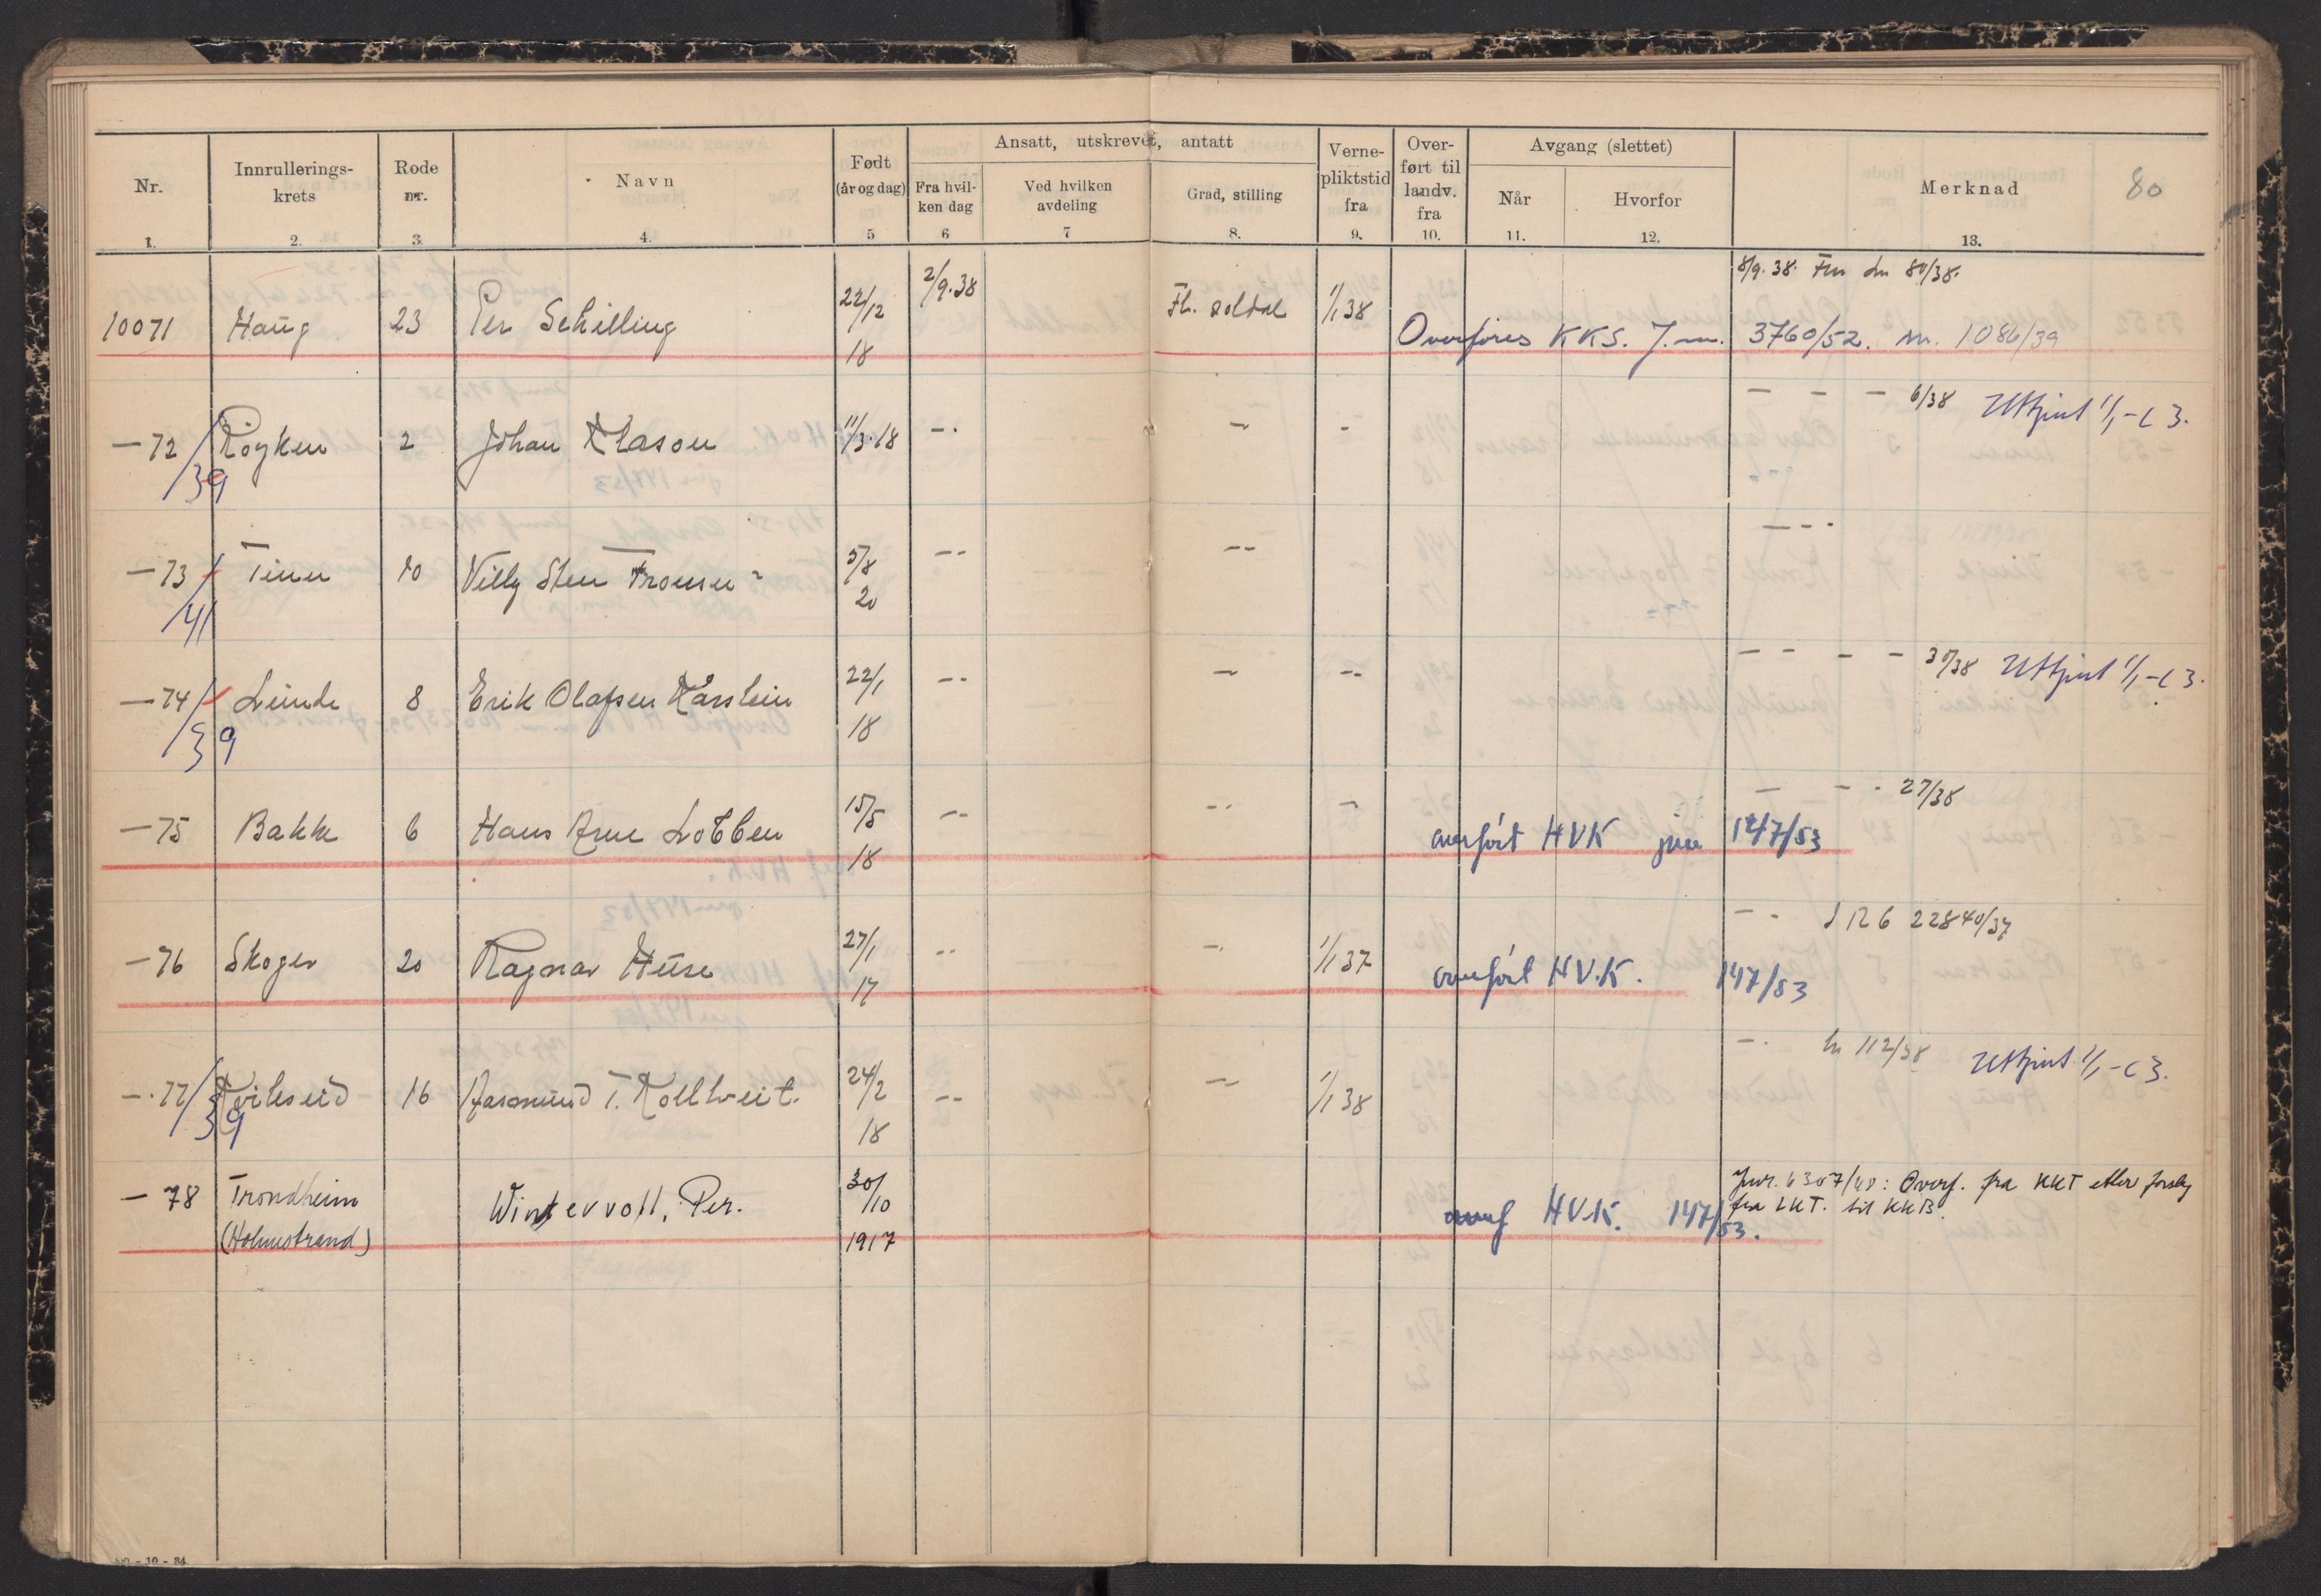 Nr. Innrullerings-krets Rode nr. Navn Født (år og dag) Ansatt, utskrevet, antatt Fra hvil-ken dag Ved hvilken avdeling Grad, stilling Verne-pliktstid fra Over-ført til landv. fra Avgang (slettet) Når Hvorfor Merknad 80
1. 2. 3. 4. 5 6 7 8. 9. 10. 11. 12. 13.
8/9.38. Fm Ln 80/38.
10071 Haug 23 Per Schilling 22/12 18 2/9.38 Fl. soldat 1/1 38 Overføres KKS. J.nr. 3760/52. nr. 1086/39
— — — 6/38 Uttjent 1/1-63.
—72/39 Røyken 2 Johan Klason 11/3.18 —. — -
— - -
—73/41 Tinn 10 Villy Sten 5/8 20 -- --
— — — — 30/38 Uttjent 1/1-63.
—74/39 Lunde 8 Erik Olafsen Karstein 22/1 18 -- — --
— - - 27/38
—75 Bakke 6 Hans Arne Lobben 15/5 18 -- -- — overført HVK jnr 147/53
— - IR 6 22840/37
—76 Skoger 20 Ragnar Huse 27/1 17 -- - 1/1 37 overført HV.K. 147/53
— Ln 112/38 Uttjent 1/1-63.
—77/39 Kviteseid 16 Aasmund T. Kolltveit. 24/2 18 -- — 1/1 38
—78 Trondheim (Holmestrand) Wintervoll, Per. 30/10 1917 overf HV.K. 147/53.
Jnr. 6307/40: Overf. fra KKT etter forslag
fra LKT. til KKB.